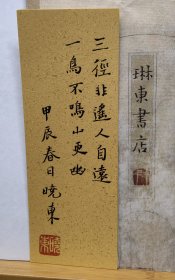 琳東書店
三徑非遙人自遠
一鳥不鳴山更幽
甲辰春日曉東